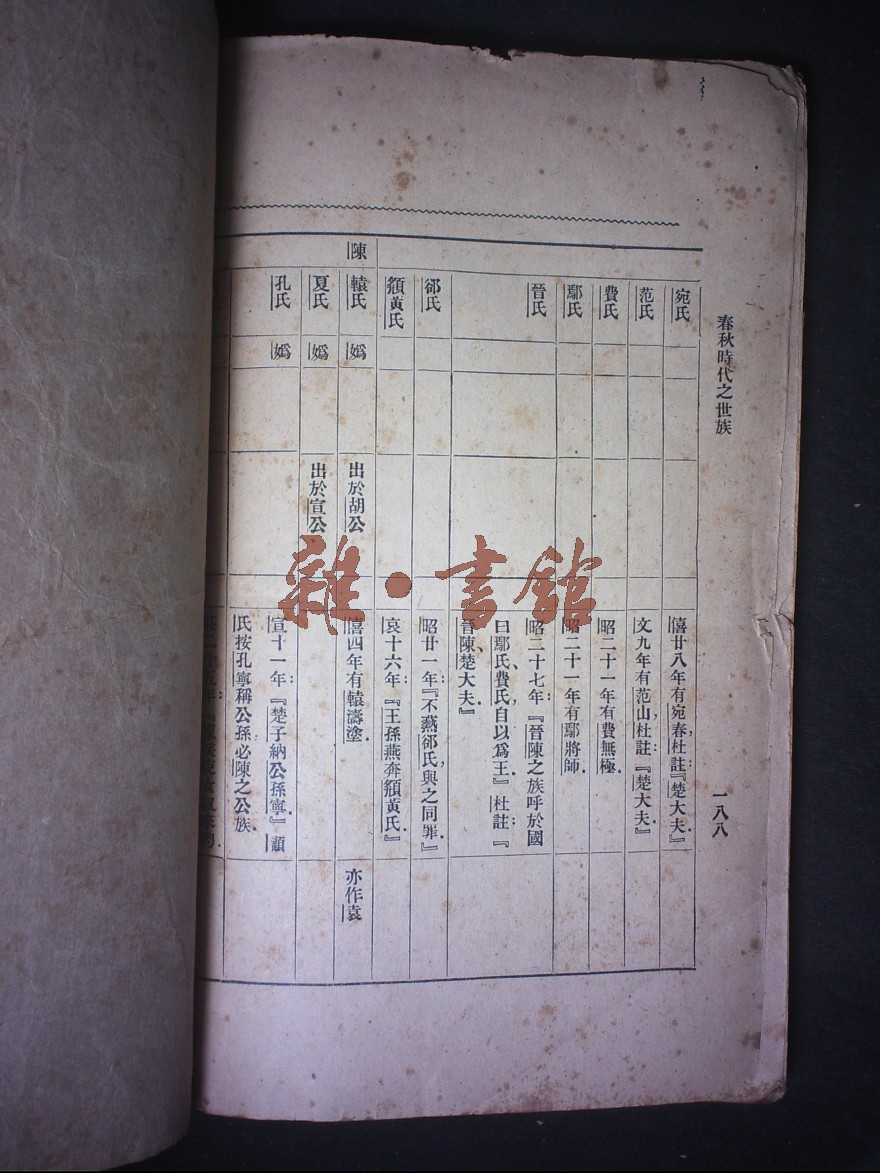 春秋時代之世族
一八八
宛氏
僖廿八年有宛春,杜註:『楚大夫』.
范氏
文九年有范山,杜註:『楚大夫』
費氏
昭二十一年有費無極.
鄢氏
昭二十一年有鄢將師.
晉氏
昭二十七年:『晉陳之族呼於國
曰鄢氏、費氏自以爲王.』杜註:『
晉陳、楚大夫.』
郤氏
昭廿一年:『不燕郤氏與之同罪.』
頯黃氏
哀十六年:『王孫燕奔頯黃氏.』
陳
轅氏
嬀
出於胡公
僖四年有轅濤塗.
亦作袁
夏氏
嬀
出於宣公
孔氏
嬀
宣十一年:『楚子納公孫寧.』顧
氏按孔寧稱公孫,必陳之公族.
雜·書館